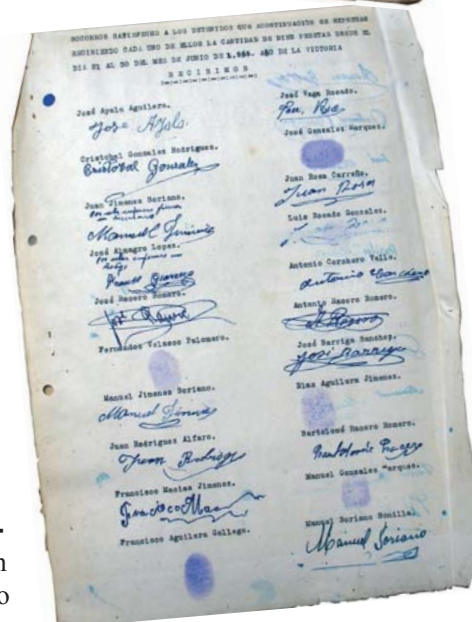 SOCORROS SATISFECHO A LOS DETENIDOS QUE ACONTINUACIÓN SE EXPRESAN
RECIBIENDO CADA UNO DE ELLOS LA CANTIDAD DE DIEZ PESETAS DESDE EL
DIA 21 AL 30 DEL MES DE JUNIO DE 1.939. AÑO DE LA VICTORIA
RECIBIMOS
José Ayala Aguilera.
José Ayala
Cristobal Gonzalez Rodriguez.
Cristobal Gonzalez
Juan Jimenez Soriano.
Por estar enfermo firma
Manuel Jimenez
José Almagro Lopez.
Por estar enfermo
José Racero Romero.
José Racero
Fernandos Velasco Palomero.
Manuel Jimenez Soriano.
Manuel Jimenez
Juan Rodriguez Alfaro.
Juan Rodriguez
Francisco Macias Jimenez.
Francisco Mac
Francisco Aguilera Gallego.
José Vega Rosado.
José Gonzalez Marquez.
Juan Rosa Carreño.
Juan Rosa
Luis Rosado Gonzalez.
Antonio Corchero Vello.
Antonio Corchero
Antonio Racero Romero.
A Racero
José Barriga Sanchez.
José Barriga
Blas Aguilera Jimenez.
Bartolomé Racero Romero.
Bartolomé Racero
Manuel Gonzalez Marquez.
Manuel Soriano Bonilla.
Manuel Soriano
n
o